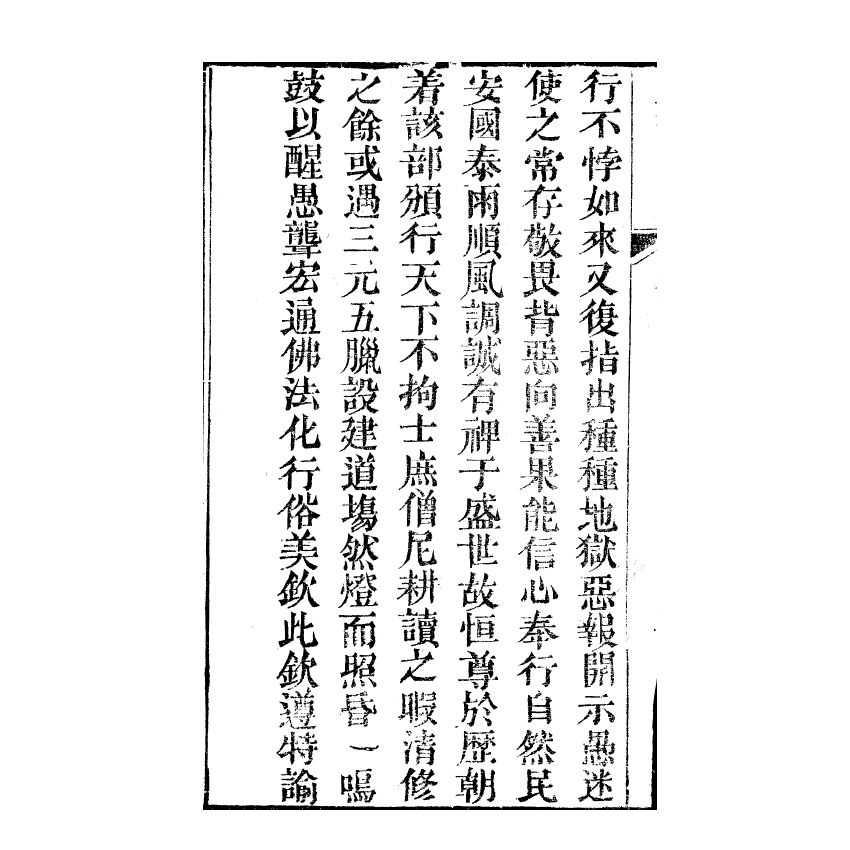 行不悖如來又復指出種種地獄惡報開示愚迷
使之常存敬畏背惡向善果能信心奉行自然民
安國泰雨順風調誠有裨于盛世故恒尊於歷朝
着該部頒行天下不拘士庶僧尼耕讀之暇清修
之餘或遇三元五臘設建道塲然燈而照昏一鳴
鼓以醒愚聾宏通佛法化行俗美欽此欽遵特諭